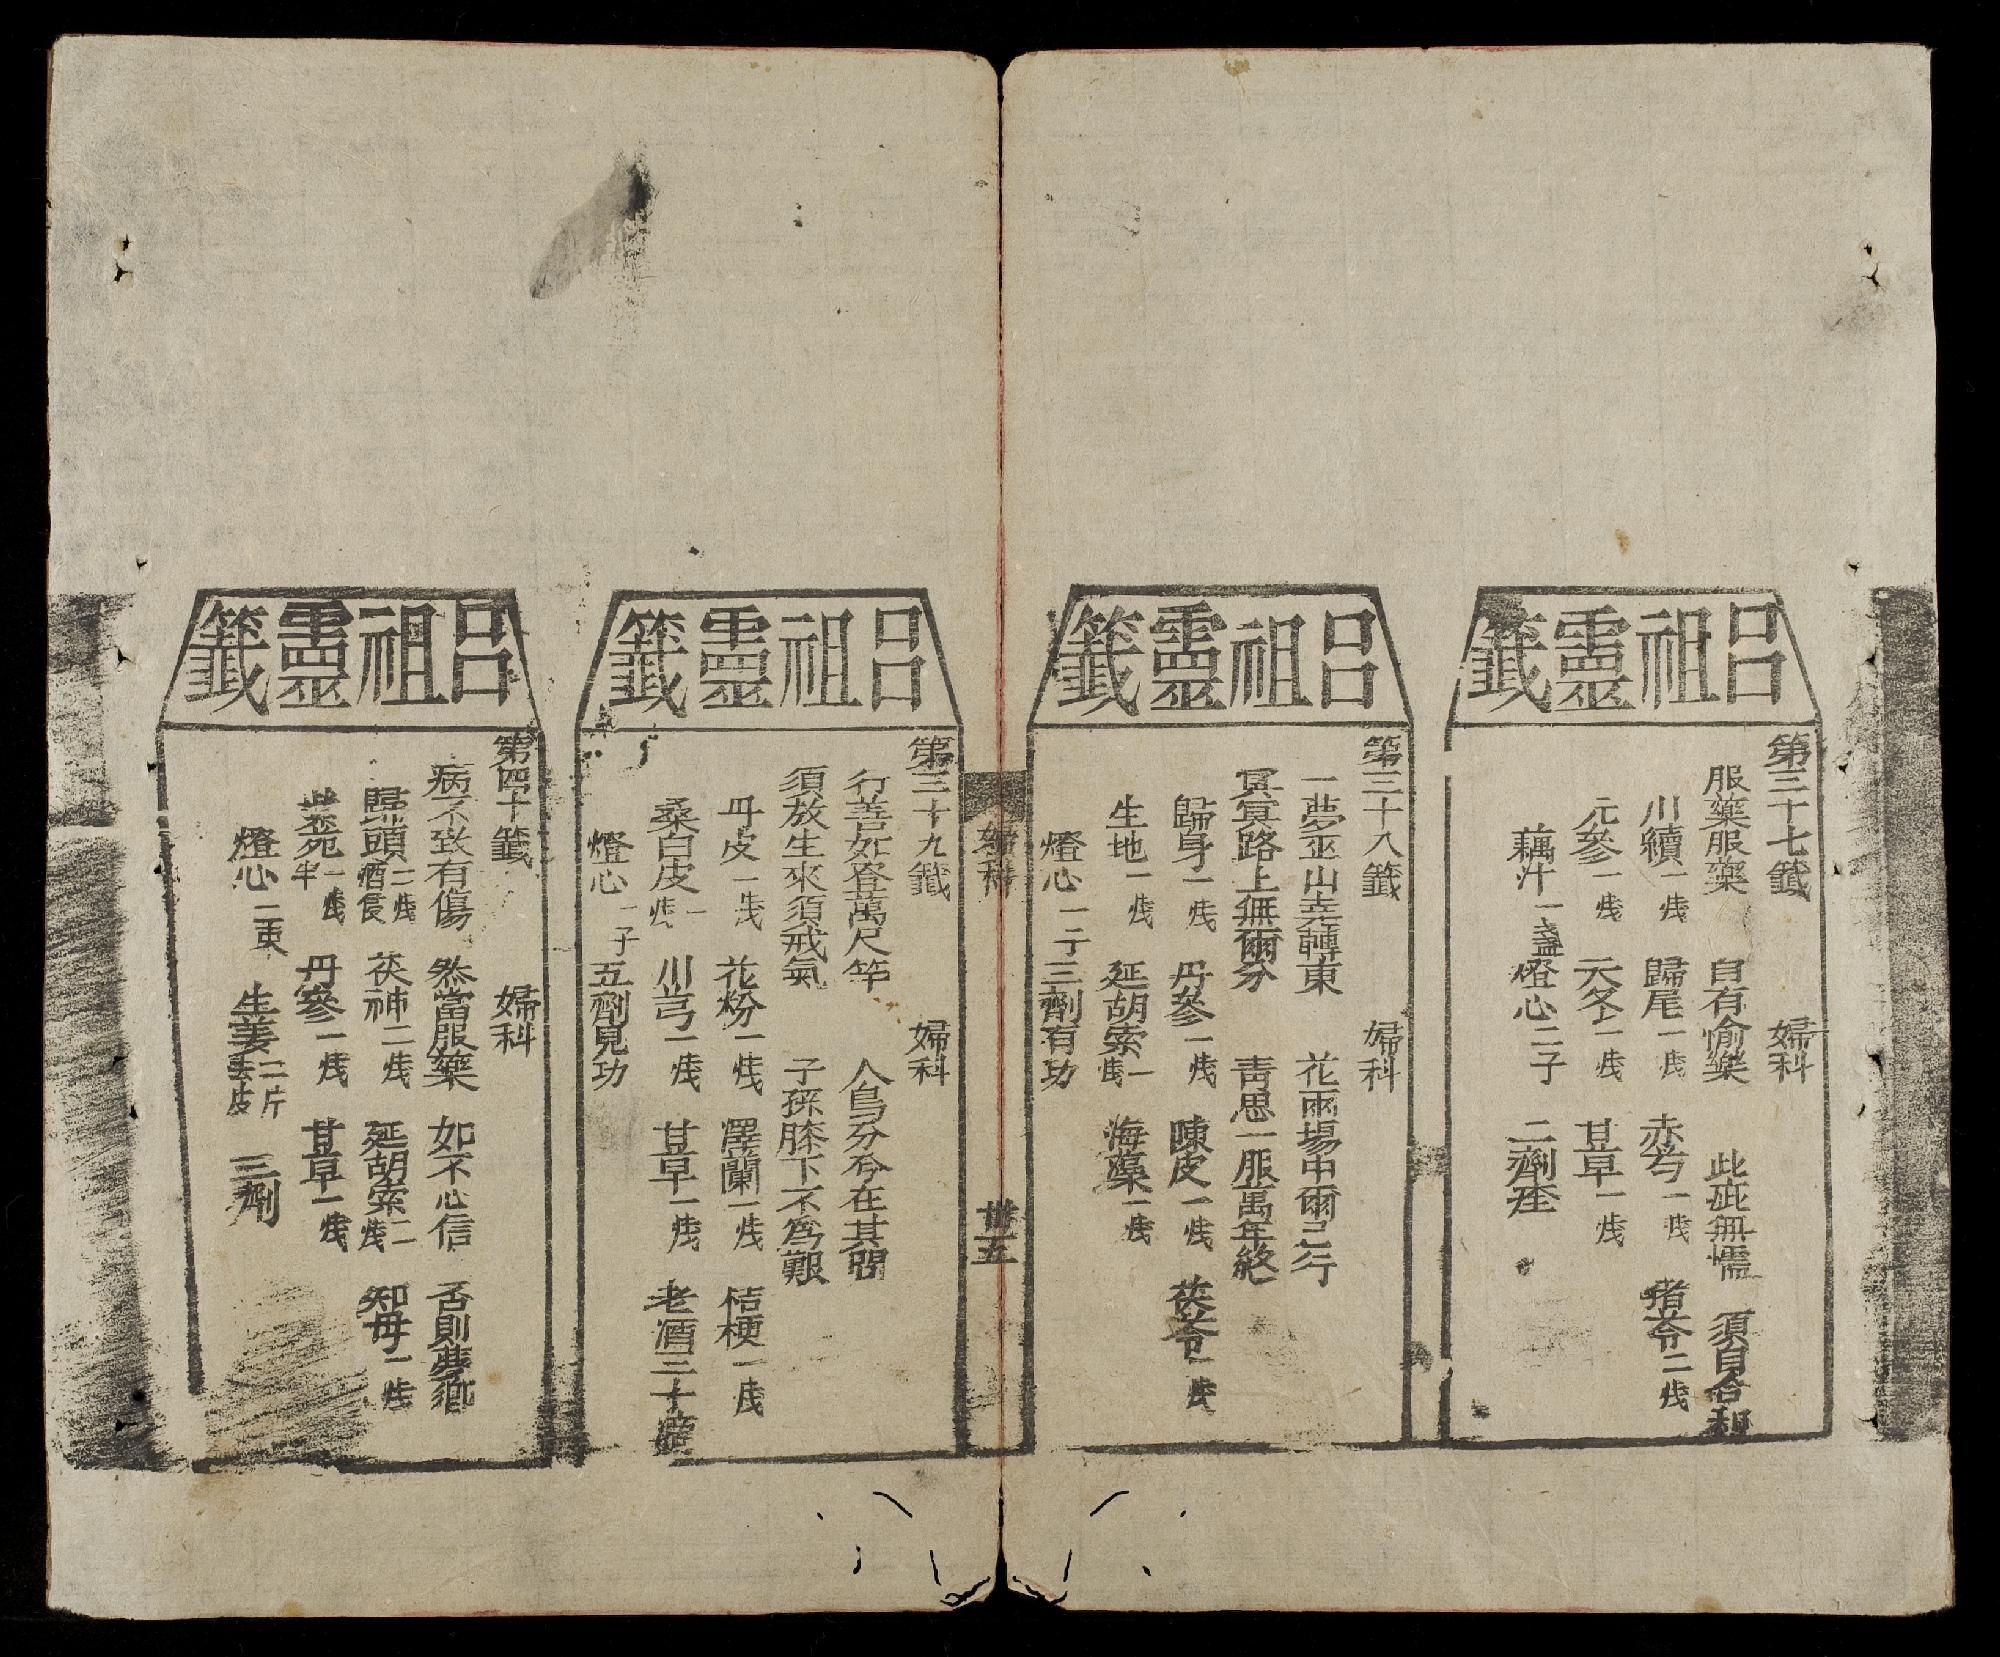 呂祖靈籤
第三十七籤 婦科
服藥服藥 自有愉樂 此疵無懦 須自合和
川續一戋 歸尾一戋 赤芍一戋 猪苓二戋
元參一戋 天冬一戋 甘草一戋
藕汁一盞 燈心二子 二劑痊
呂祖靈籤
第三十八籤 婦科
一夢巫山幸轉東 花雨場中爾己行
冥冥路上無爾分 靑思一服萬年終
歸身一戋 丹參一戋 陳皮一戋 茯苓一戋
生地一戋 延胡索一戋 海藻一戋
燈心一子 三劑有功
婦科 卅五
呂祖靈籤
第三十九籤 婦科
行善如登萬尺竿 人鳥分兮在其間
須放生來須戒氣 子孫膝下不爲艱
丹皮一戋 花粉一戋 澤蘭一戋 桔梗一戋
桑白皮一戋 川芎一戋 甘草一戋 老酒三十
燈心一子 五劑見功
呂祖靈籤
第四十籤 婦科
病不致有傷 叅當服藥 如不心信 否則夢鄉
歸頭二戋酒食 茯神二戋 延胡索二戋 知母一戋
紫菀一戋半 丹參一戋 甘草一戋
燈心二束 生姜二片去皮 三劑